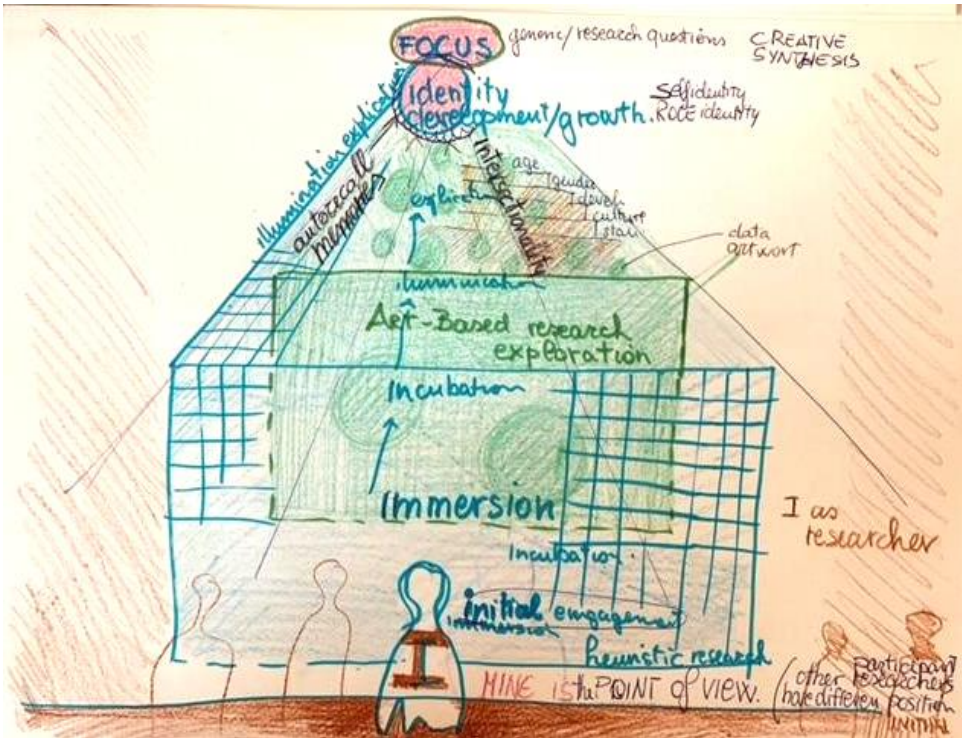 FOCUS
generic/research questions
CREATIVE
SYNTHESIS
identity
development/growth.
Selfidentity
ROLE identity
illumination explication
autorecall
intersectionality
age
gender
culture
explication
data
artwort
illumination
Art-Based research
exploration
Incubation
Immersion
I as
researcher
Incubation.
initial engagement
immersion
heuristic research
I
MINE is the POINT of VIEW.
(other participant
researchers
have different position